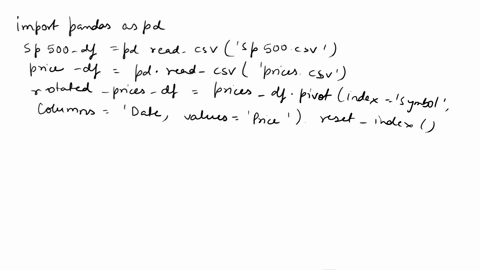 import pandas as pd
Sp 500_df = pd read_csv ('Sp 500.csv')
price _df = pd. read_csv ( 'prices.csv')
rotated_prices_df = prices_df.pivot (index = 'symbol',
Columns = 'Date, values = 'Price ') reset_index ()